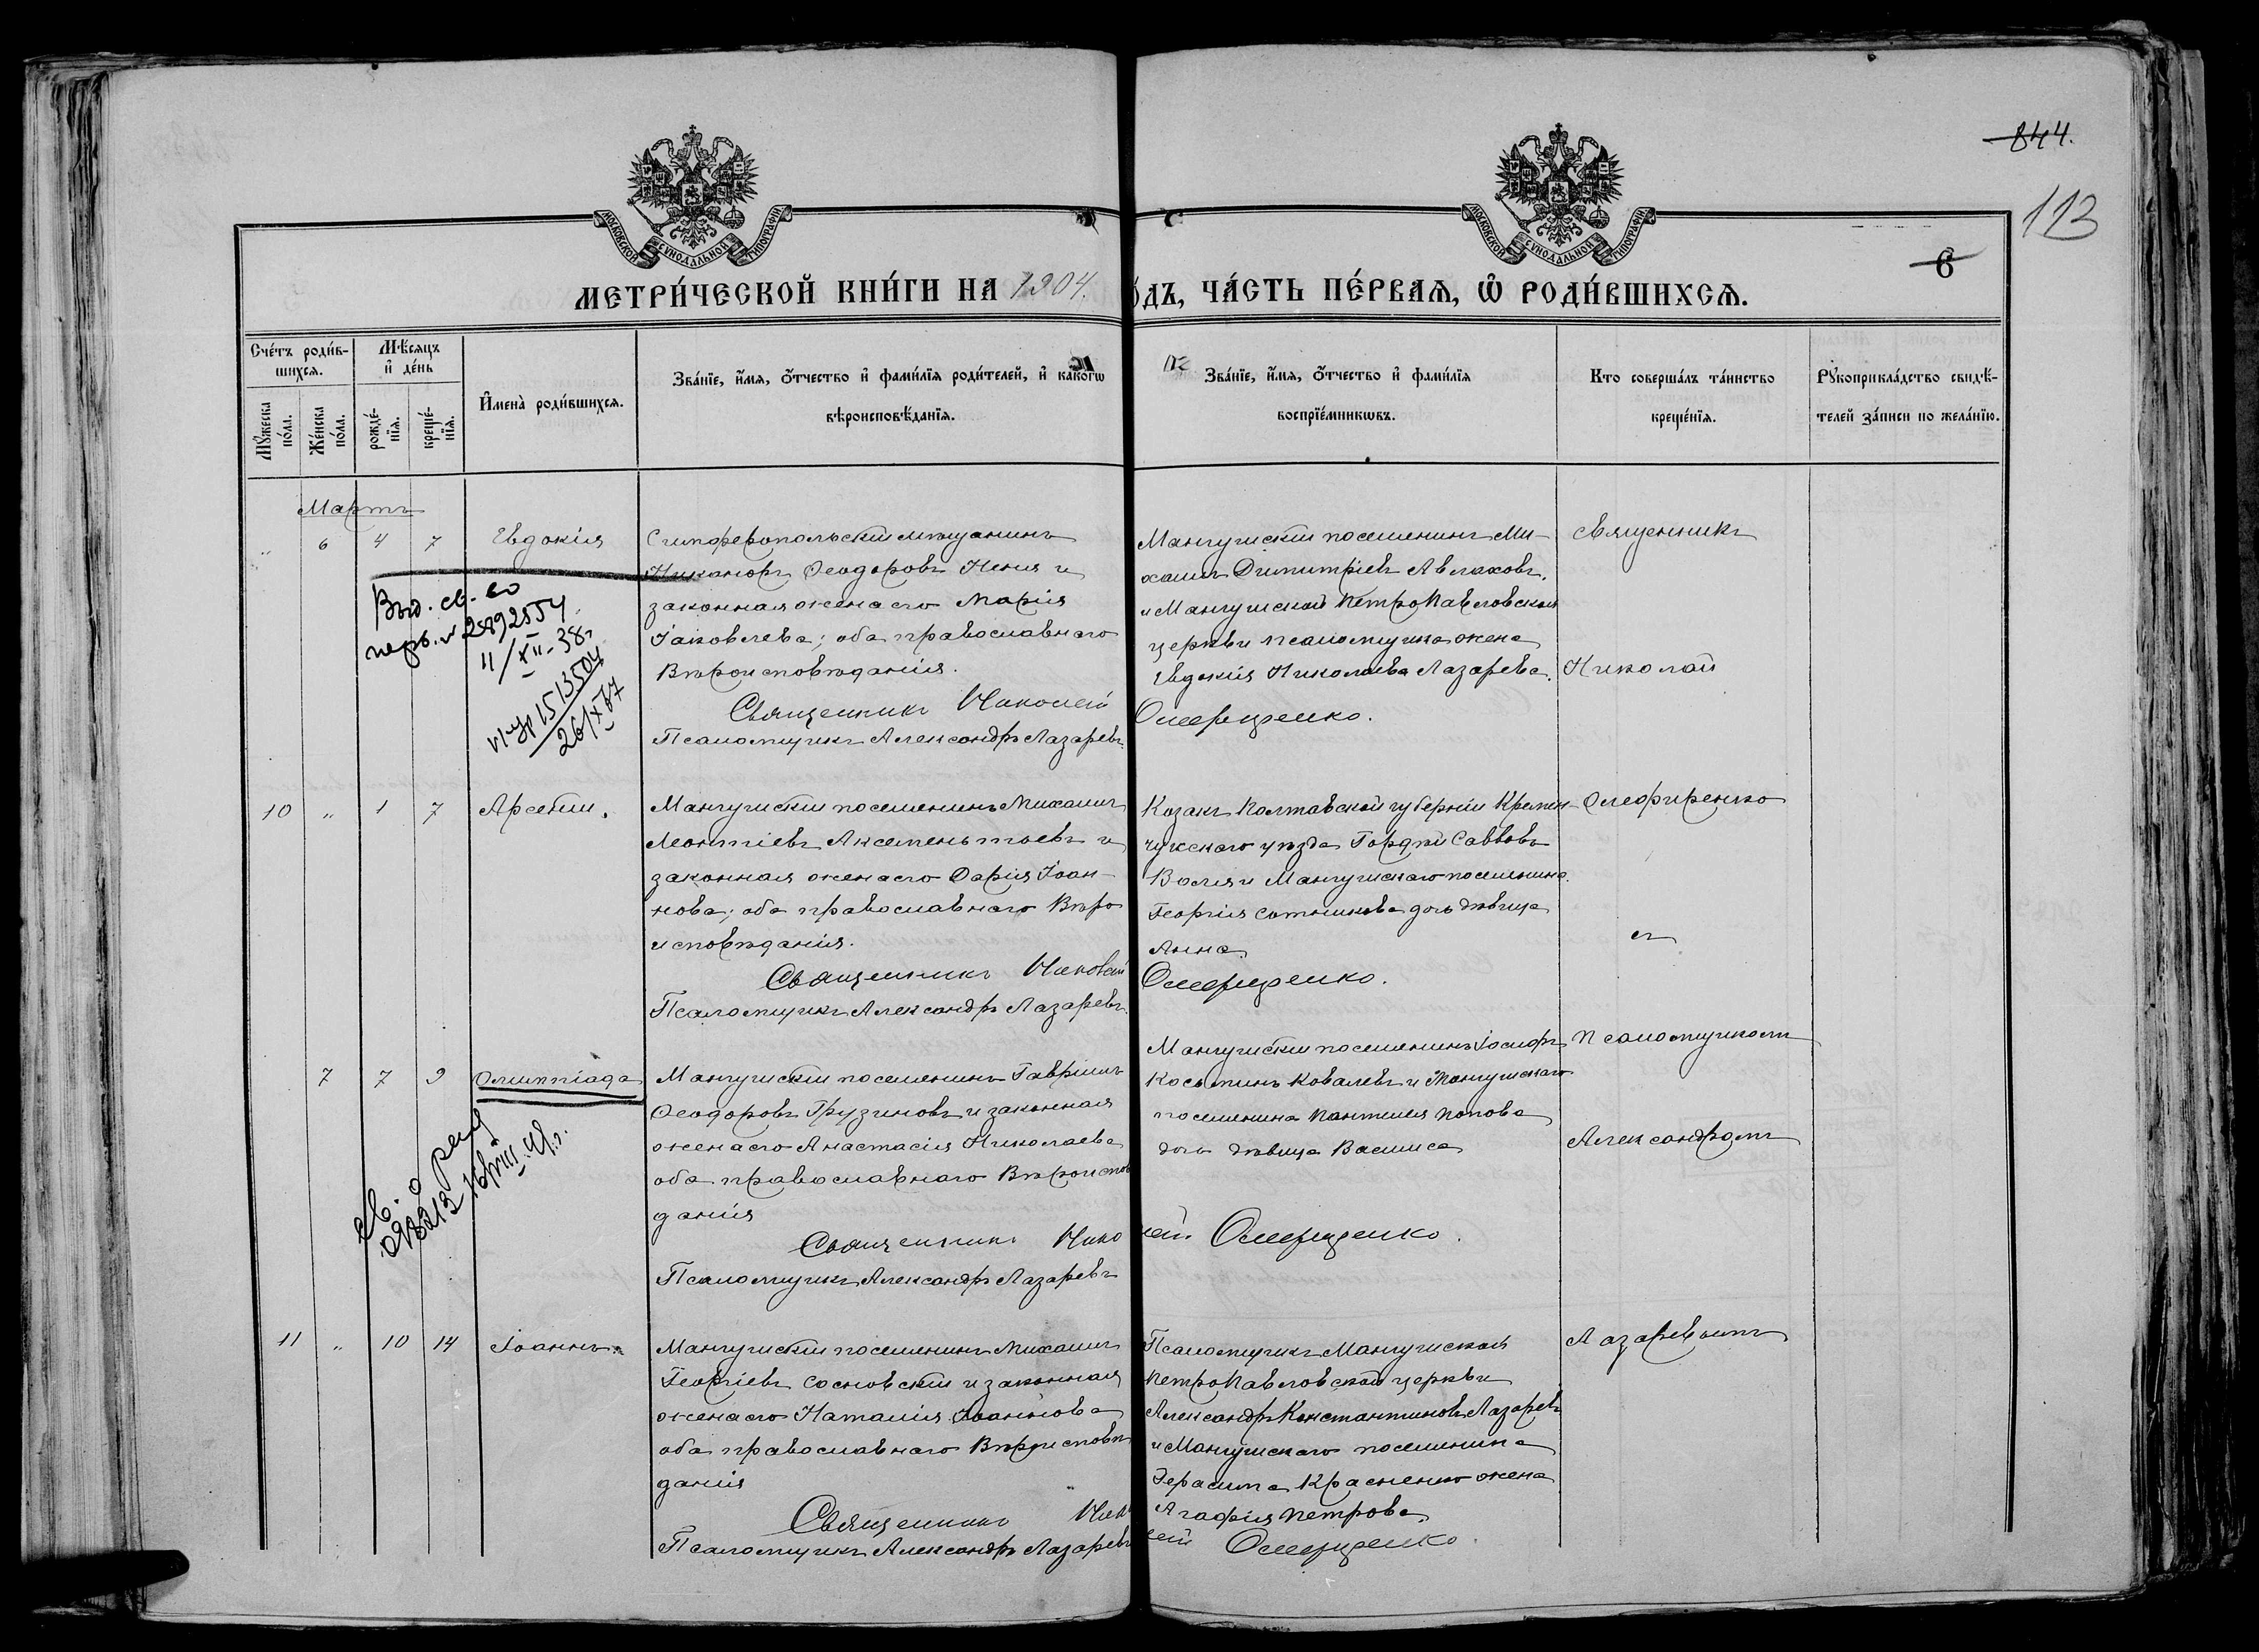 844.
113
6
МОСКОВСКОЙ СѴНОДАЛЬНОЙ ТИПОГРАФІИ
МОСКОВСКОЙ СѴНОДАЛЬНОЙ ТИПОГРАФІИ
МЕТРИ́ЧЕСКОЙ КНИ́ГИ НА 1904.
О́ДЪ, ЧА́СТЬ ПЕ́РВАѦ, Ѽ РОДИ́ВШИХСѦ.
Сче́тъ роди́в-
шихсѧ.
Мꙋ́жеска
по́ла.
Же́нска
по́ла.
Мѣ́сѧцъ
и҆ де́нь
рожде́-
нїѧ.
креще́-
нїѧ.
И҆мена̀ роди́вшихсѧ.
Зва́нїе, и҆́мѧ, ѻ҆́тчество и҆ фами́лїѧ роди́телей, и҆ како́гѡ
вѣроисповѣ́данїѧ.
Зва́нїе, и҆́мѧ, ѻ҆́тчество и҆ фами́лїѧ
воспрїе́мникѡвъ.
Кто соверша́лъ та́инство
креще́нїѧ.
Рꙋкоприкла́дство свидѣ́-
телей за́писи по жела́нїю.
Мартъ
„ 6 4 7 Евдокія
Симферопольскій мѣщанинъ
Никаноръ Ѳеодоровъ Неня и
законная жена его Марія
Іаковлева; оба православнаго
Вѣроисповѣданія.
Священникъ Николай
Псаломщикъ Александръ Лазаревъ.
Мангушскій поселянинъ Ми-
хаилъ Димитріевъ Авлаховъ,
и Мангушской ПетроПавловской
церкви псаломщика жена
Евдокія Николаева Лазарева.
Олефиренко.
Священникъ
Николай
Выд. св-во
перв. № 2892554
11/XII-38г
15/3504
26/X 67
10 „ 1 7 Арсеній.
Мангушскій поселянинъ Михаилъ
Леонтіевъ Аксеменьтьевъ и
законная жена его Дарія Іоан-
нова; оба православнаго Вѣро
исповѣданія.
Священникъ Николай
Псаломщикъ Александръ Лазаревъ.
Козакъ Полтавской губерніи Кремен-
чукскаго уѣзда Гордѣй Савввовъ
Воля и Мангушскаго поселянина
Георгія Сотникова дочь дѣвица
Анна.
Олефиренко.
Олефиренко
съ
7 7 9 Олимпіада
Мангушскій поселянинъ Гавріилъ
Ѳеодоровъ Грузиновъ и законная
жена его Анастасія Николаева
оба православнаго Вѣроиспов
данія
Священникъ Нико
Псаломщикъ Александръ Лазаревъ
Мангушскій поселянинъ Іосифъ
Косьминъ Ковалевъ и Мангушскаго
поселянина Пантелея Попова
дочь дѣвица Василиса
лай Олефиренко.
Псаломщикомъ
Александромъ
св. о рег
16/VIII.41г.
11 „ 10 14 Іоаннъ.
Мангушскій поселянинъ Михаилъ
Георгіевъ Сосновскій и законная
жена его Наталія Іоаннова
оба православнаго Вѣроисповѣ
данія
Священникъ Ник
Псаломщикъ Александръ Лазаревъ
Псаломщикъ Мангушской
ПетроПавловской церкви
Александръ Константиновъ Лазаревъ
и Мангушскаго поселянина
Герасима Красненко жена
Агафія Петрова
лай Олефиренко.
Лазаревымъ